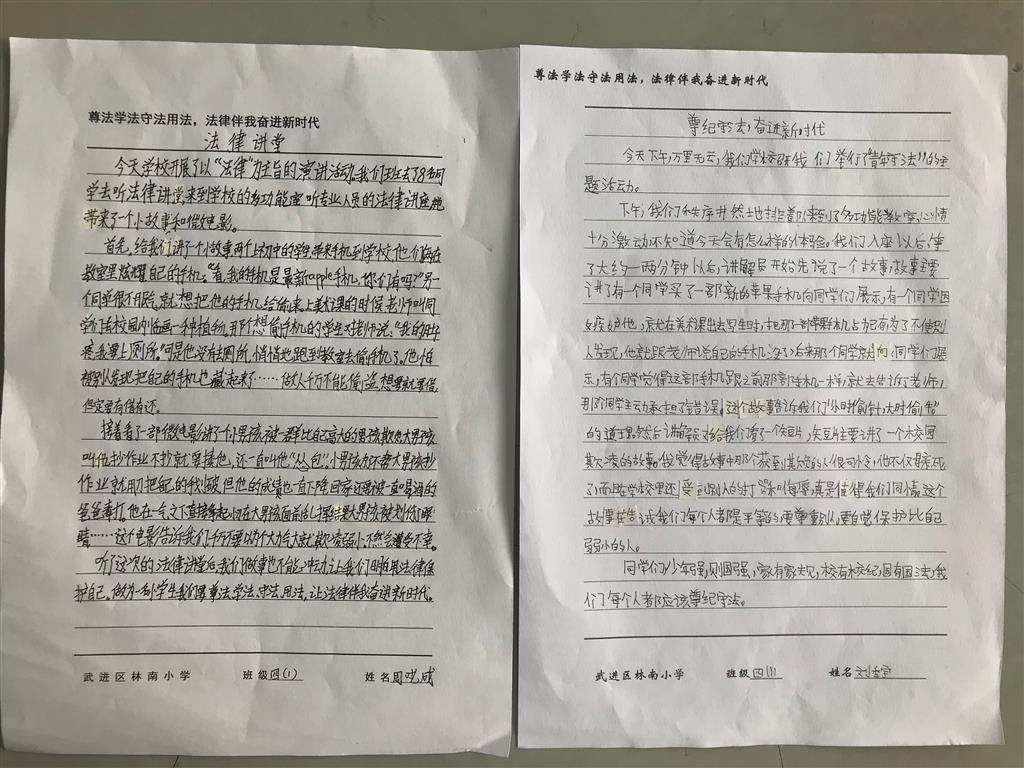 尊法学法守法用法，法律伴我奋进新时代
法律讲堂
今天学校开展了以“法律”为主旨的演讲活动。我们班去了8名同
学去听法律讲堂来到学校的多功能室听专业人员的法律讲座她
带来了一个小故事和微电影。
首先，给我们讲了个小故事两个上初中的学生带来手机到学校他们俩在
教室里炫耀自己的手机。“看，我的手机是最新apple手机，你们有吗？”另一
个同学很不服，就想把他的手机给偷来。上美术课的时候老师叫同
学们在校园内临画一种植物。那个想偷手机的学生对老师说，“我的肚子
疼我要上厕所。”可是他没有去厕所，悄悄地跑到教室去偷手机了。他怕
被别人发现把自己的手机也藏起来了……做人千万不能偷盗想要就要借
但定要有借有还。
接着看了一部微电影讲了个小男孩被一群比自己高大的男孩欺负大男孩
叫他抄作业不抄就要揍他，还一直叫他“怂包”。小男孩为不帮大男孩抄
作业就用刀把自己的手划破但他的成绩也一直下降回家还要被一直喝酒的
爸爸奉打。他在一气之下直接拿起
……这个电影告诉我们千万不要以为个大力气大就欺凌弱小不然会遭受不幸。
听了这次的法律讲堂后我们做事也不能冲动让我们明白用法律保
护自己。做为一名小学生我们要尊法学法、守法、用法，让法律伴我奋进新时代。
武进区林南小学 班级四(1) 姓名周 成
尊法学法守法用法，法律伴我奋进新时代
尊纪守法，奋进新时代
今天下午，万里无云，我们学校跟我们举行了“普军法”的主
题活动。
下午，我们秩序井然地排着队来到了多功能教室，心情
十分激动不知道今天会有怎么样的体验。我们入座以后，等
了大约一两分钟以后，讲解员开始先说了一个故事，故事主要
讲了有一个同学买了一部新的苹果手机向同学们展示，有一个同学因
嫉妒他，竟然在美术课出去写生时，把那一部苹果手机占为己有为了不使别
人发现，他就跟老师说自己的手机没了，后来那个同学就向同学们展
示，有个同学觉得这部手机跟之前那部手机一样，就去告诉了老师，
那个同学主动承担了错误。这个故事告诉我们“小时偷针，大时偷牛”
的道理，然后讲解员又给我们看了一个短片，短片主要讲了一个校园
欺凌的故事。我觉得故事中那个孩到欺负的人很可怜，他不仅母亲死
了，而且在学校里还受到别人的打骂和侮辱真是值得我们同情，这个
故事告诉我们每个人都是平等的，要尊重别人，要自觉保护比自己
弱小的人。
同学们，少年强，则国强，家有家规，校有校纪，国有国法，我
们每个人都应该尊纪守法。
武进区林南小学 班级四(1) 姓名刘